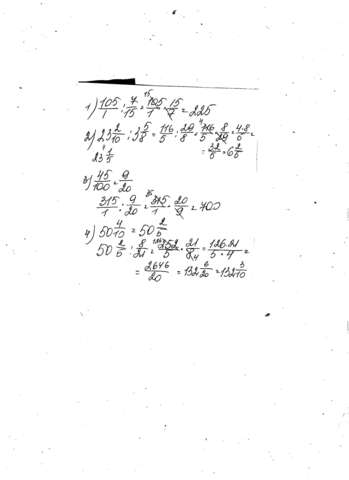 1) 105/1 : 7/15 = 105/1 · 15/7 = 225
2) 23 2/10 : 3 5/8 = 116/5 : 29/8 = 116/5 · 8/29 = 4·8/5 =
23 1/5 = 32/5 = 6 2/5
3) 45/100 = 9/20
315/1 : 9/20 = 315/1 · 20/9 = 700
4) 50 4/10 = 50 2/5
50 2/5 : 8/21 = 252/5 · 21/8 = 126·21/5·4 =
= 2646/20 = 132 6/20 = 132 3/10